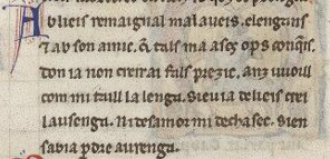 Ablieis remaignal malaueis. elengans
& ab son amic. & tals ma aseç ops conqis.
don ia non creirai fals prezic. anz uuoill
com mi trull la lenga. sieu ia delieis crei
lausenga. ni desamor mi dechasec. sien
sabia pdre aurenga.